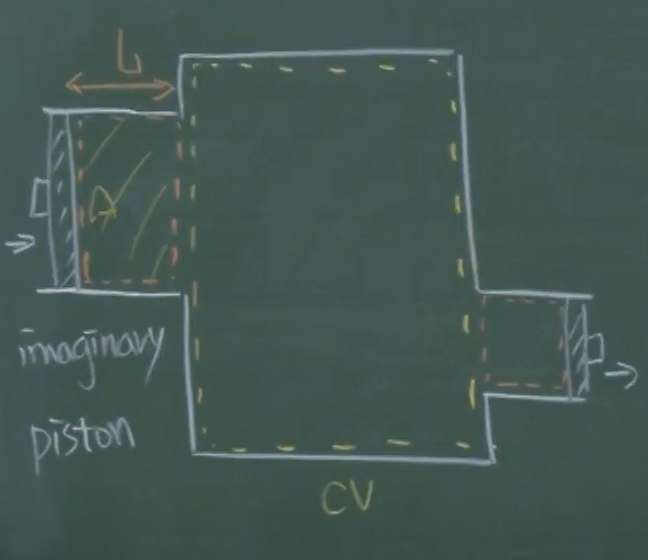 L
A
imaginary
piston
CV